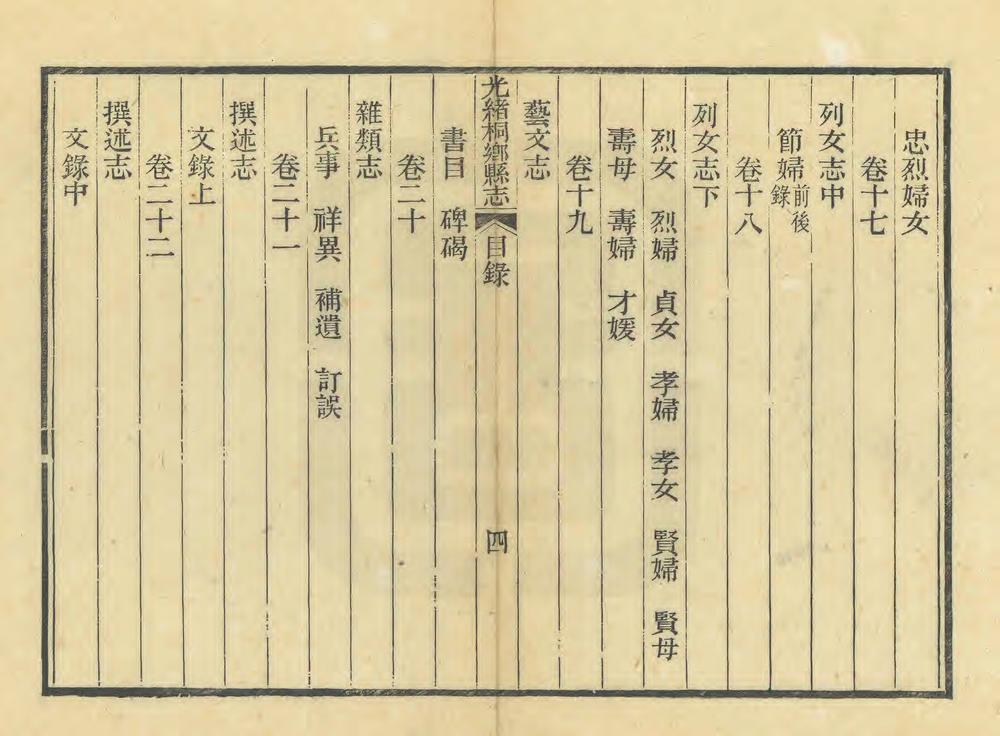 忠烈婦女
卷十七
列女志中
節婦前後錄
卷十八
列女志下
烈女　烈婦　貞女　孝婦　孝女　賢婦　賢母
壽母　壽婦　才媛
卷十九
藝文志
光緒桐鄉縣志　目錄　四
書目　碑碣
卷二十
雜類志
兵事　祥異　補遺　訂誤
卷二十一
撰述志
文錄上
卷二十二
撰述志
文錄中